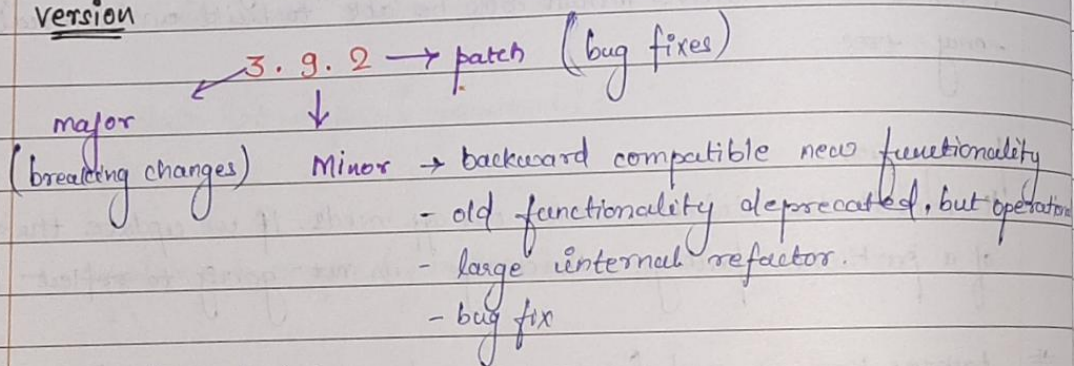 version
3.9.2 → patch (bug fixes)
major
(breaking changes) Minor → backward compatible new functionality
- old functionality deprecated, but operation
- large internal refactor.
- bug fix